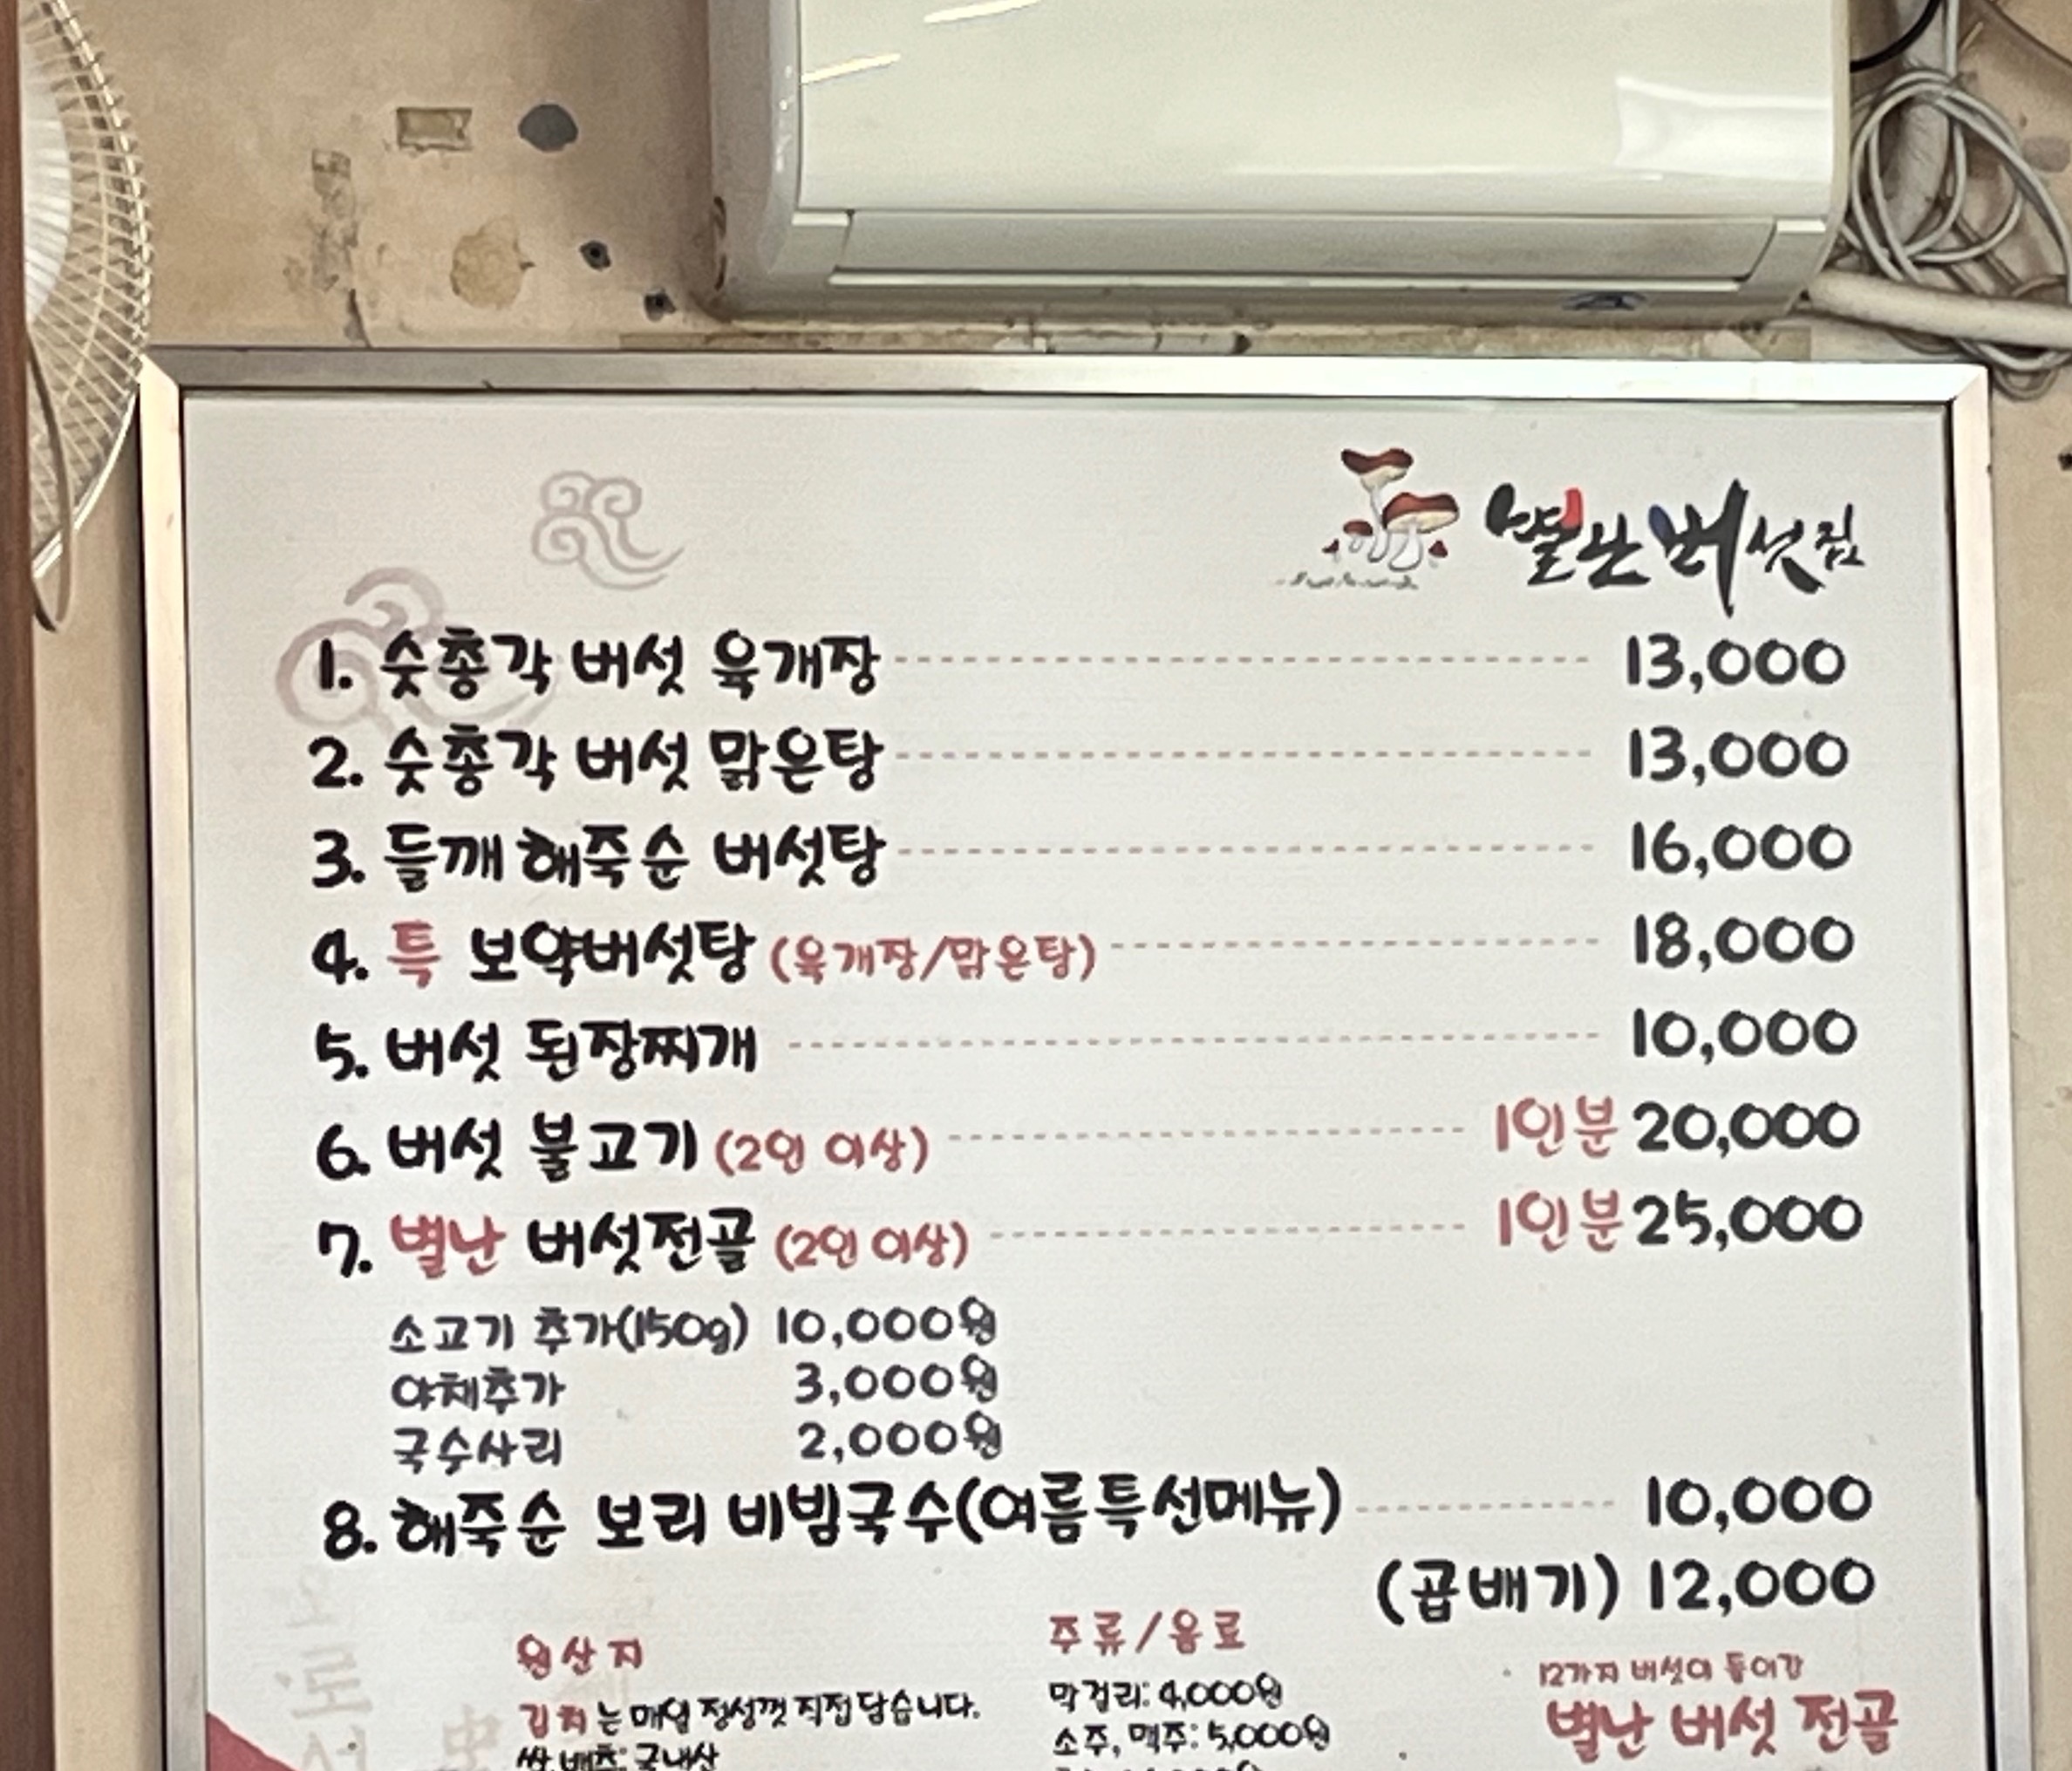 별난버섯집
1. 숫총각 버섯 육개장 13,000
2. 숫총각 버섯 맑은탕 13,000
3. 들깨 해죽순 버섯탕 16,000
4. 특 보약버섯탕 (육개장/맑은탕) 18,000
5. 버섯 된장찌개 10,000
6. 버섯 불고기 (2인 이상) 1인분 20,000
7. 별난 버섯전골 (2인 이상) 1인분 25,000
소고기 추가(150g) 10,000원
야채추가 3,000원
국수사리 2,000원
8. 해죽순 보리 비빔국수(여름특선메뉴) 10,000
(곱배기) 12,000
원산지
김치는 매일 정성껏 직접 담습니다.
쌀, 배추: 국내산
주류/음료
막걸리: 4,000원
소주, 맥주: 5,000원
12가지 버섯이 들어간
별난 버섯 전골